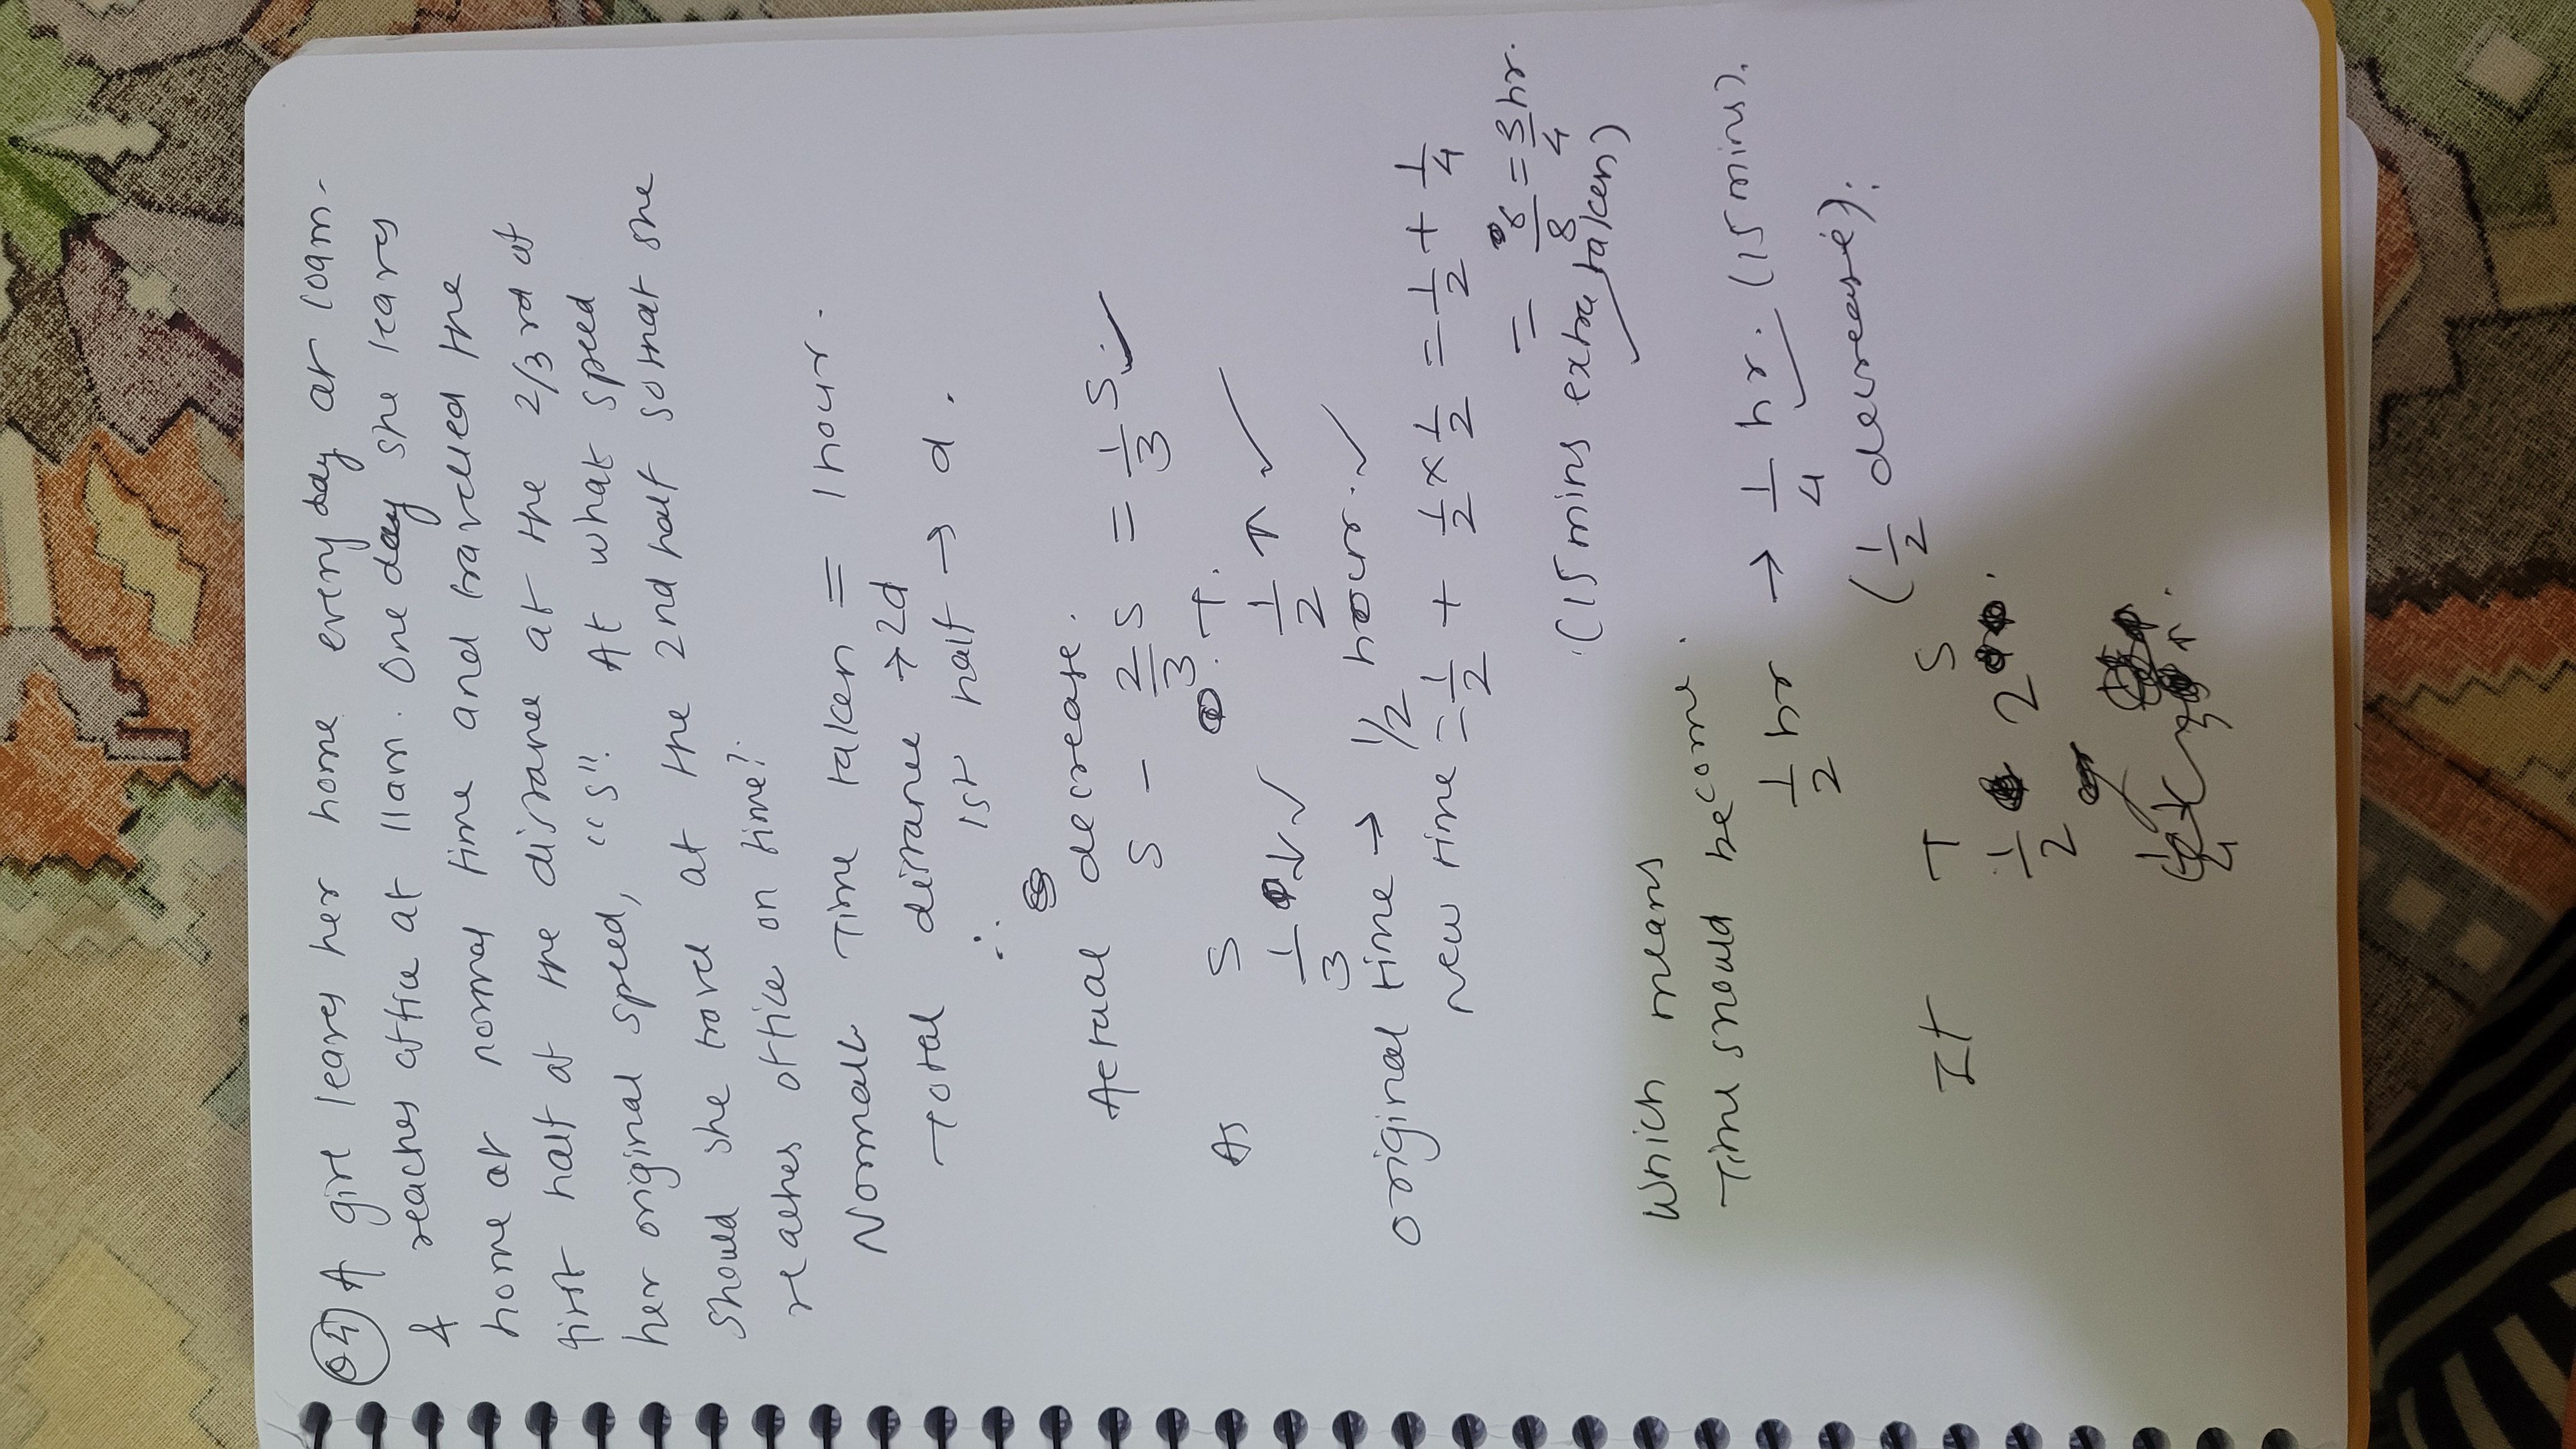 Q4) A girl leaves her home everyday at 10am.
& reaches office at 11am. One day she leaves
home at normal time and travelled the
first half of the distance at the 2/3 rd of
her original speed, "s". At what speed
should she travel at the 2nd half so that she
reaches office on time?
Normally Time taken = 1 hour.
Total distance → 2d
∴ 1st half → d.
Actual decrease.
S - 2/3 S = 1/3 S. ✓
As S T.
1/3 ↓ ✓ 1/2 ↑ ✓
original time → 1/2 hour. ✓
new time = 1/2 + 1/2 × 1/2 = 1/2 + 1/4
= 6/8 = 3/4 hr.
(15 mins extra taken)
Which means.
Time should become.
1/2 hr → 1/4 hr. (15 mins).
(1/2 decrease).
If T S
1/2 2